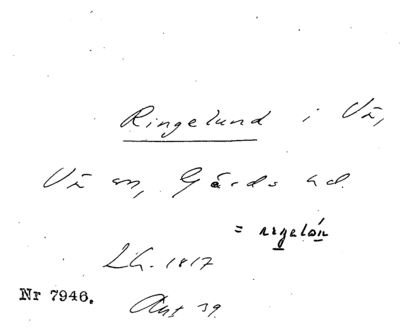 Ringelund i Vä,
Vä sn, Gärds hd.
= rıŋelón
Lh. 1817
Nr 7946.
Ant 39.